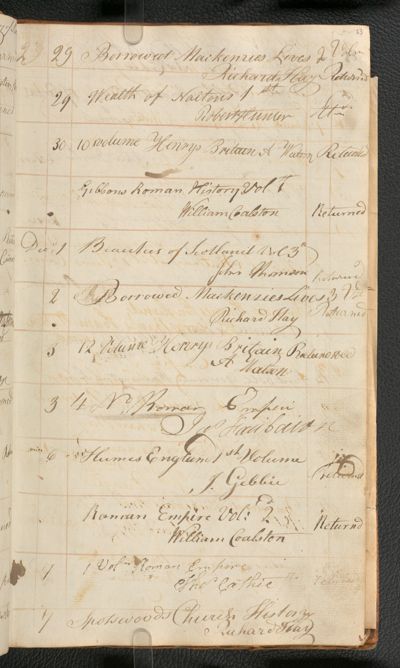 23
29 29 Borrowed Mackenzies Lives 2 Vol
Richard Hay Returned
29 Wealth of Nations 1st
Robert Hunter Rtn
30 10 volume Henrys Britain A Watson Returned
Gibbons Roman History Vol 1
William Coalston Returned
Decr 1 Beauties of Scotland Vol 3d
John Thomson Returned
2 Borrowed Mackenzies Lives 3 Vol
Richard Hay Returned
3 12 Volume Henrys Britain Returned
A Watson
3 4 No Roman Empire
Jas
6 Humes England 1st Volume
J. Gebbie returned
Roman Empire Vol: 2d
William Coalston Returned
7 1 Vol Roman Empire
Thos Cathie
7 Spotswoods Church History
Richard Hay